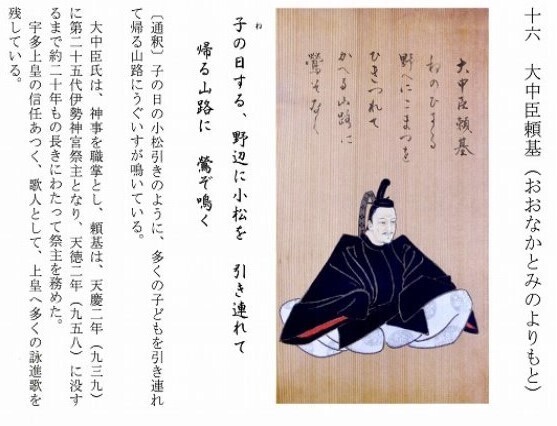 十六　大中臣頼基（おおなかとみのよりもと）
大中臣頼基
ねのひする
野へにこまつを
ひきつれて
かへる山路に
鶯そなく
子の日する、野辺に小松を　引き連れて
ね
帰る山路に　鶯ぞ鳴く
〔通釈〕子の日の小松引きのように、多くの子どもを引き連れ
て帰る山路にうぐいすが鳴いている。
大中臣氏は、神事を職掌とし、頼基は、天慶二年（九三九）
に第二十五代伊勢神宮祭主となり、天徳二年（九五八）に没す
るまで約二十年もの長きにわたって祭主を務めた。
宇多上皇の信任あつく、歌人として、上皇へ多くの詠進歌を
残している。